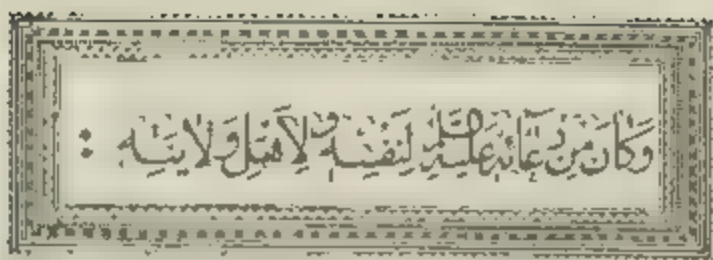 وَكَانَ مِنْ دُعَائِهِ عَلَيْهِ السَّلَامُ لِنَفْسِهِ وَلِأَهْلِ وَلَايَتِهِ :